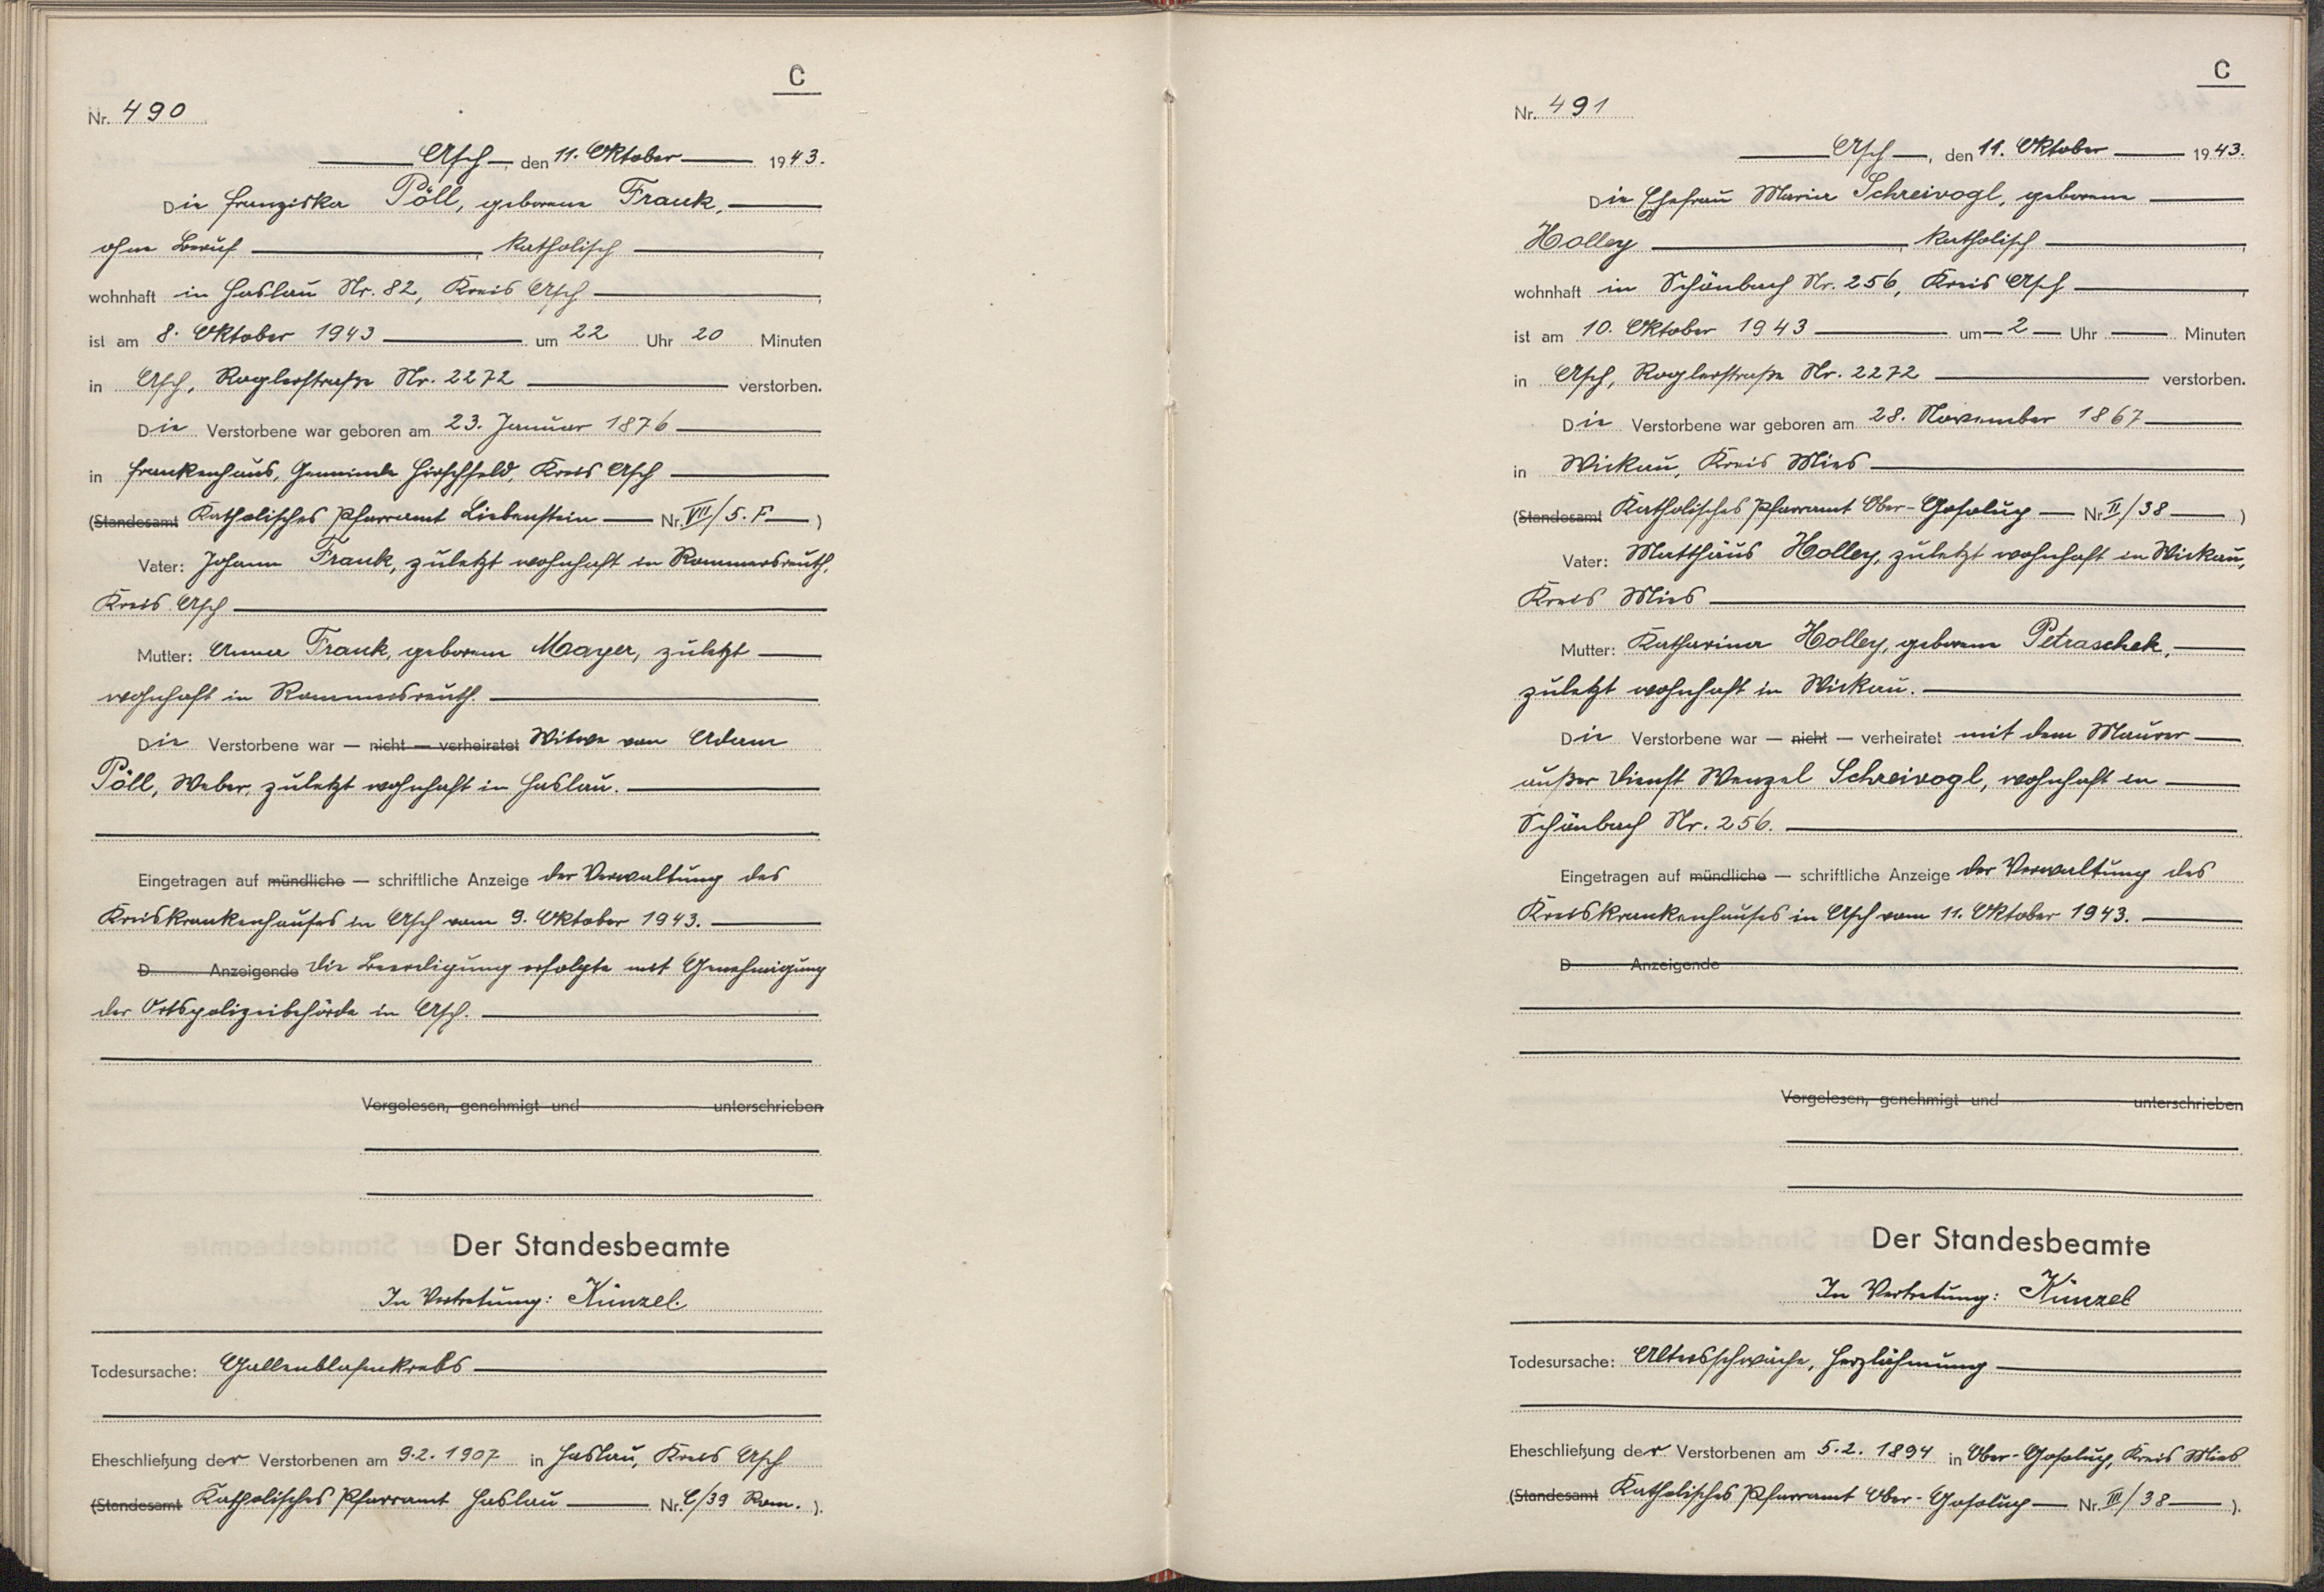 C
Nr. 490
Asch, den 11. Oktober 1943.
Die Franziska Pöll, geborene Frank,
ohne Beruf, katholisch,
wohnhaft in Haslau Nr. 82, Kreis Asch,
ist am 8. Oktober 1943 um 22 Uhr 20 Minuten
in Asch, Roglerstraße Nr. 2272 verstorben.
Die Verstorbene war geboren am 23. Januar 1876
in Frankenhaus, Gemeinde Hirschfeld, Kreis Asch
(Standesamt Katholisches Pfarramt Liebenstein Nr. VII/5. F)
Vater: Johann Frank, zuletzt wohnhaft in Rommersreuth,
Kreis Asch
Mutter: Anna Frank, geborene Mayer, zuletzt
wohnhaft in Rommersreuth.
Die Verstorbene war — nicht — verheiratet Witwe von Adam
Pöll, Weber, zuletzt wohnhaft in Haslau.
Eingetragen auf mündliche — schriftliche Anzeige der Verwaltung des
Kreiskrankenhauses in Asch vom 9. Oktober 1943.
D Anzeigende Die Beerdigung erfolgte mit Genehmigung
der Ortspolizeibehörde in Asch.
Vorgelesen, genehmigt und unterschrieben
Der Standesbeamte
In Vertretung: Künzel.
Todesursache: Gallenblasenkrebs
Eheschließung der Verstorbenen am 9.2.1907 in Haslau, Kreis Asch
(Standesamt Katholisches Pfarramt Haslau Nr. C/39 Rom.).
C
Nr. 491
Asch, den 11. Oktober 1943.
Die Ehefrau Maria Schreivogl, geborene
Holley, katholisch,
wohnhaft in Schönbach Nr. 256, Kreis Asch,
ist am 10. Oktober 1943 um 2 Uhr Minuten
in Asch, Roglerstraße Nr. 2272 verstorben.
Die Verstorbene war geboren am 28. November 1867
in Wickau, Kreis Mies
(Standesamt Katholisches Pfarramt Ober-Gosolup Nr. II/38)
Vater: Matthäus Holley, zuletzt wohnhaft in Wickau,
Kreis Mies
Mutter: Katharina Holley, geborene Petraschek,
zuletzt wohnhaft in Wickau.
Die Verstorbene war — nicht — verheiratet mit dem Maurer
außer Dienst Wenzel Schreivogl, wohnhaft in
Schönbach Nr. 256.
Eingetragen auf mündliche — schriftliche Anzeige der Verwaltung des
Kreiskrankenhauses in Asch vom 11. Oktober 1943.
D Anzeigende
Vorgelesen, genehmigt und unterschrieben
Der Standesbeamte
In Vertretung: Künzel
Todesursache: Altersschwäche, Herzlähmung
Eheschließung der Verstorbenen am 5.2.1894 in Ober-Gosolup, Kreis Mies
(Standesamt Katholisches Pfarramt Ober-Gosolup Nr. III/38).